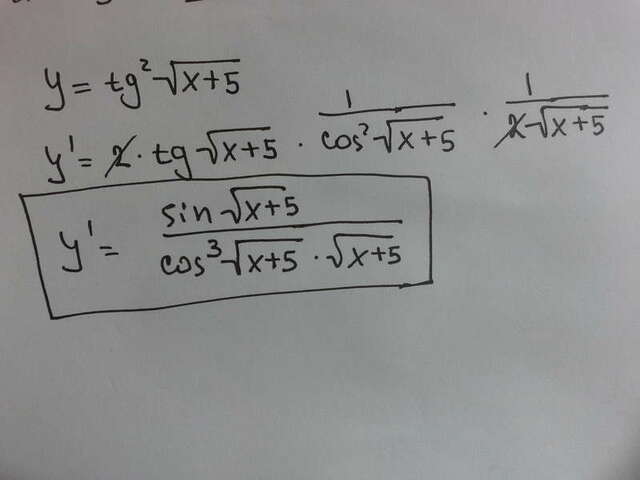 y = tg²√(x+5)
y' = 2 · tg√(x+5) · 1/(cos²√(x+5)) · 1/(2√(x+5))
y' = sin√(x+5)/(cos³√(x+5) · √(x+5))